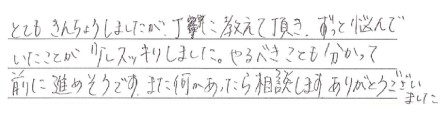 とてもきんちょうしましたが、丁寧に教えて頂き、ずっと悩んで
いたことが少しスッキリしました。やるべきことも分かって
前に進めそうです。また何かあったら相談します ありがとうござい
ました